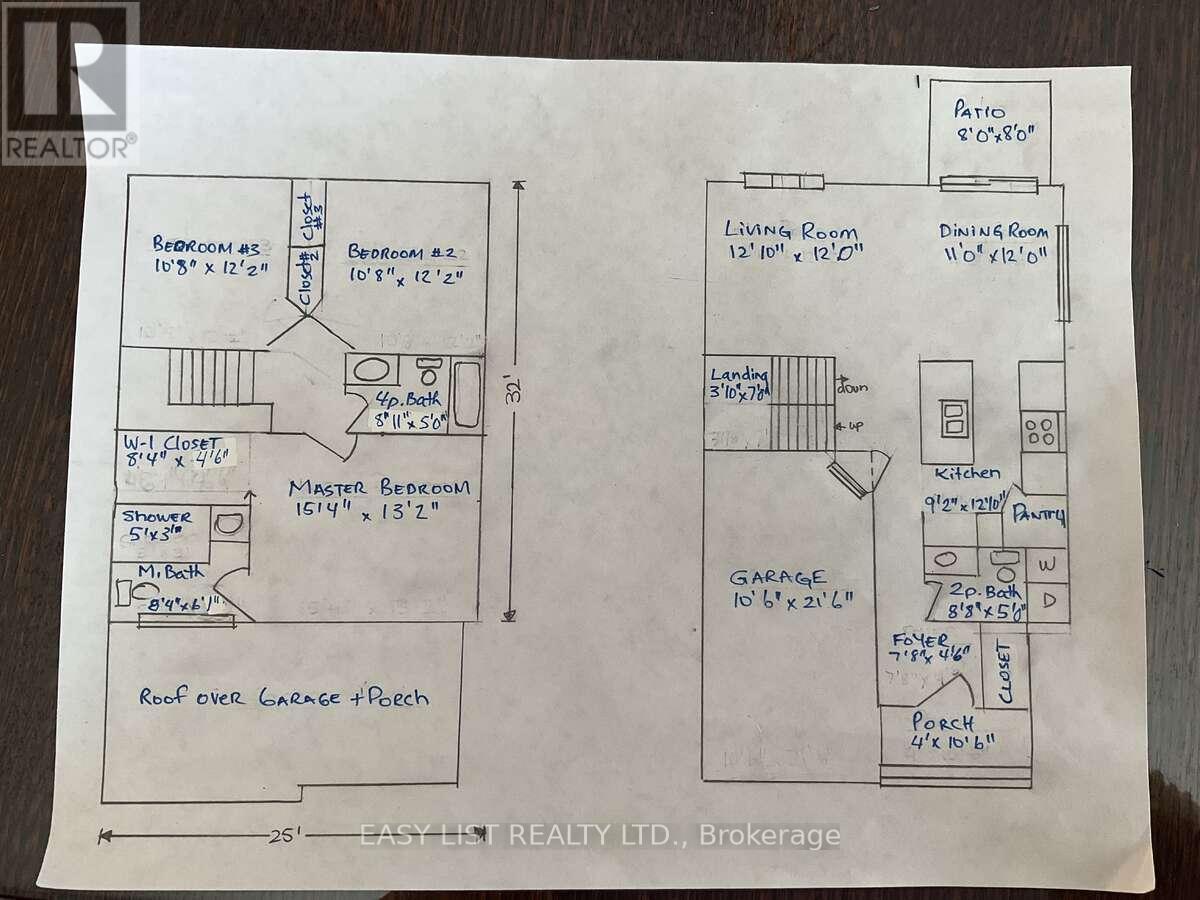 REALTOR®
BEDROOM #3
10'8" x 12'2"
Closet #3
Closet #2
BEDROOM #2
10'8" x 12'2"
4p. Bath
8'11" x 5'0"
W-I CLOSET
8'4" x 4'6"
MASTER BEDROOM
15'4" x 13'2"
SHOWER
5'x3'
M. Bath
8'4" x 6'1"
ROOF OVER GARAGE + PORCH
32'
25'
PATIO
8'0" x 8'0"
LIVING ROOM
12'10" x 12'0"
DINING ROOM
11'0" x 12'0"
Landing
3'10" x 7'0"
down
up
Kitchen
9'2" x 12'0"
PANTRY
GARAGE
10'6" x 21'6"
W
D
2p. Bath
8'8" x 5'0"
FOYER
7'8" x 4'6"
CLOSET
PORCH
4' x 10'6"
EASY LIST REALTY LTD., Brokerage